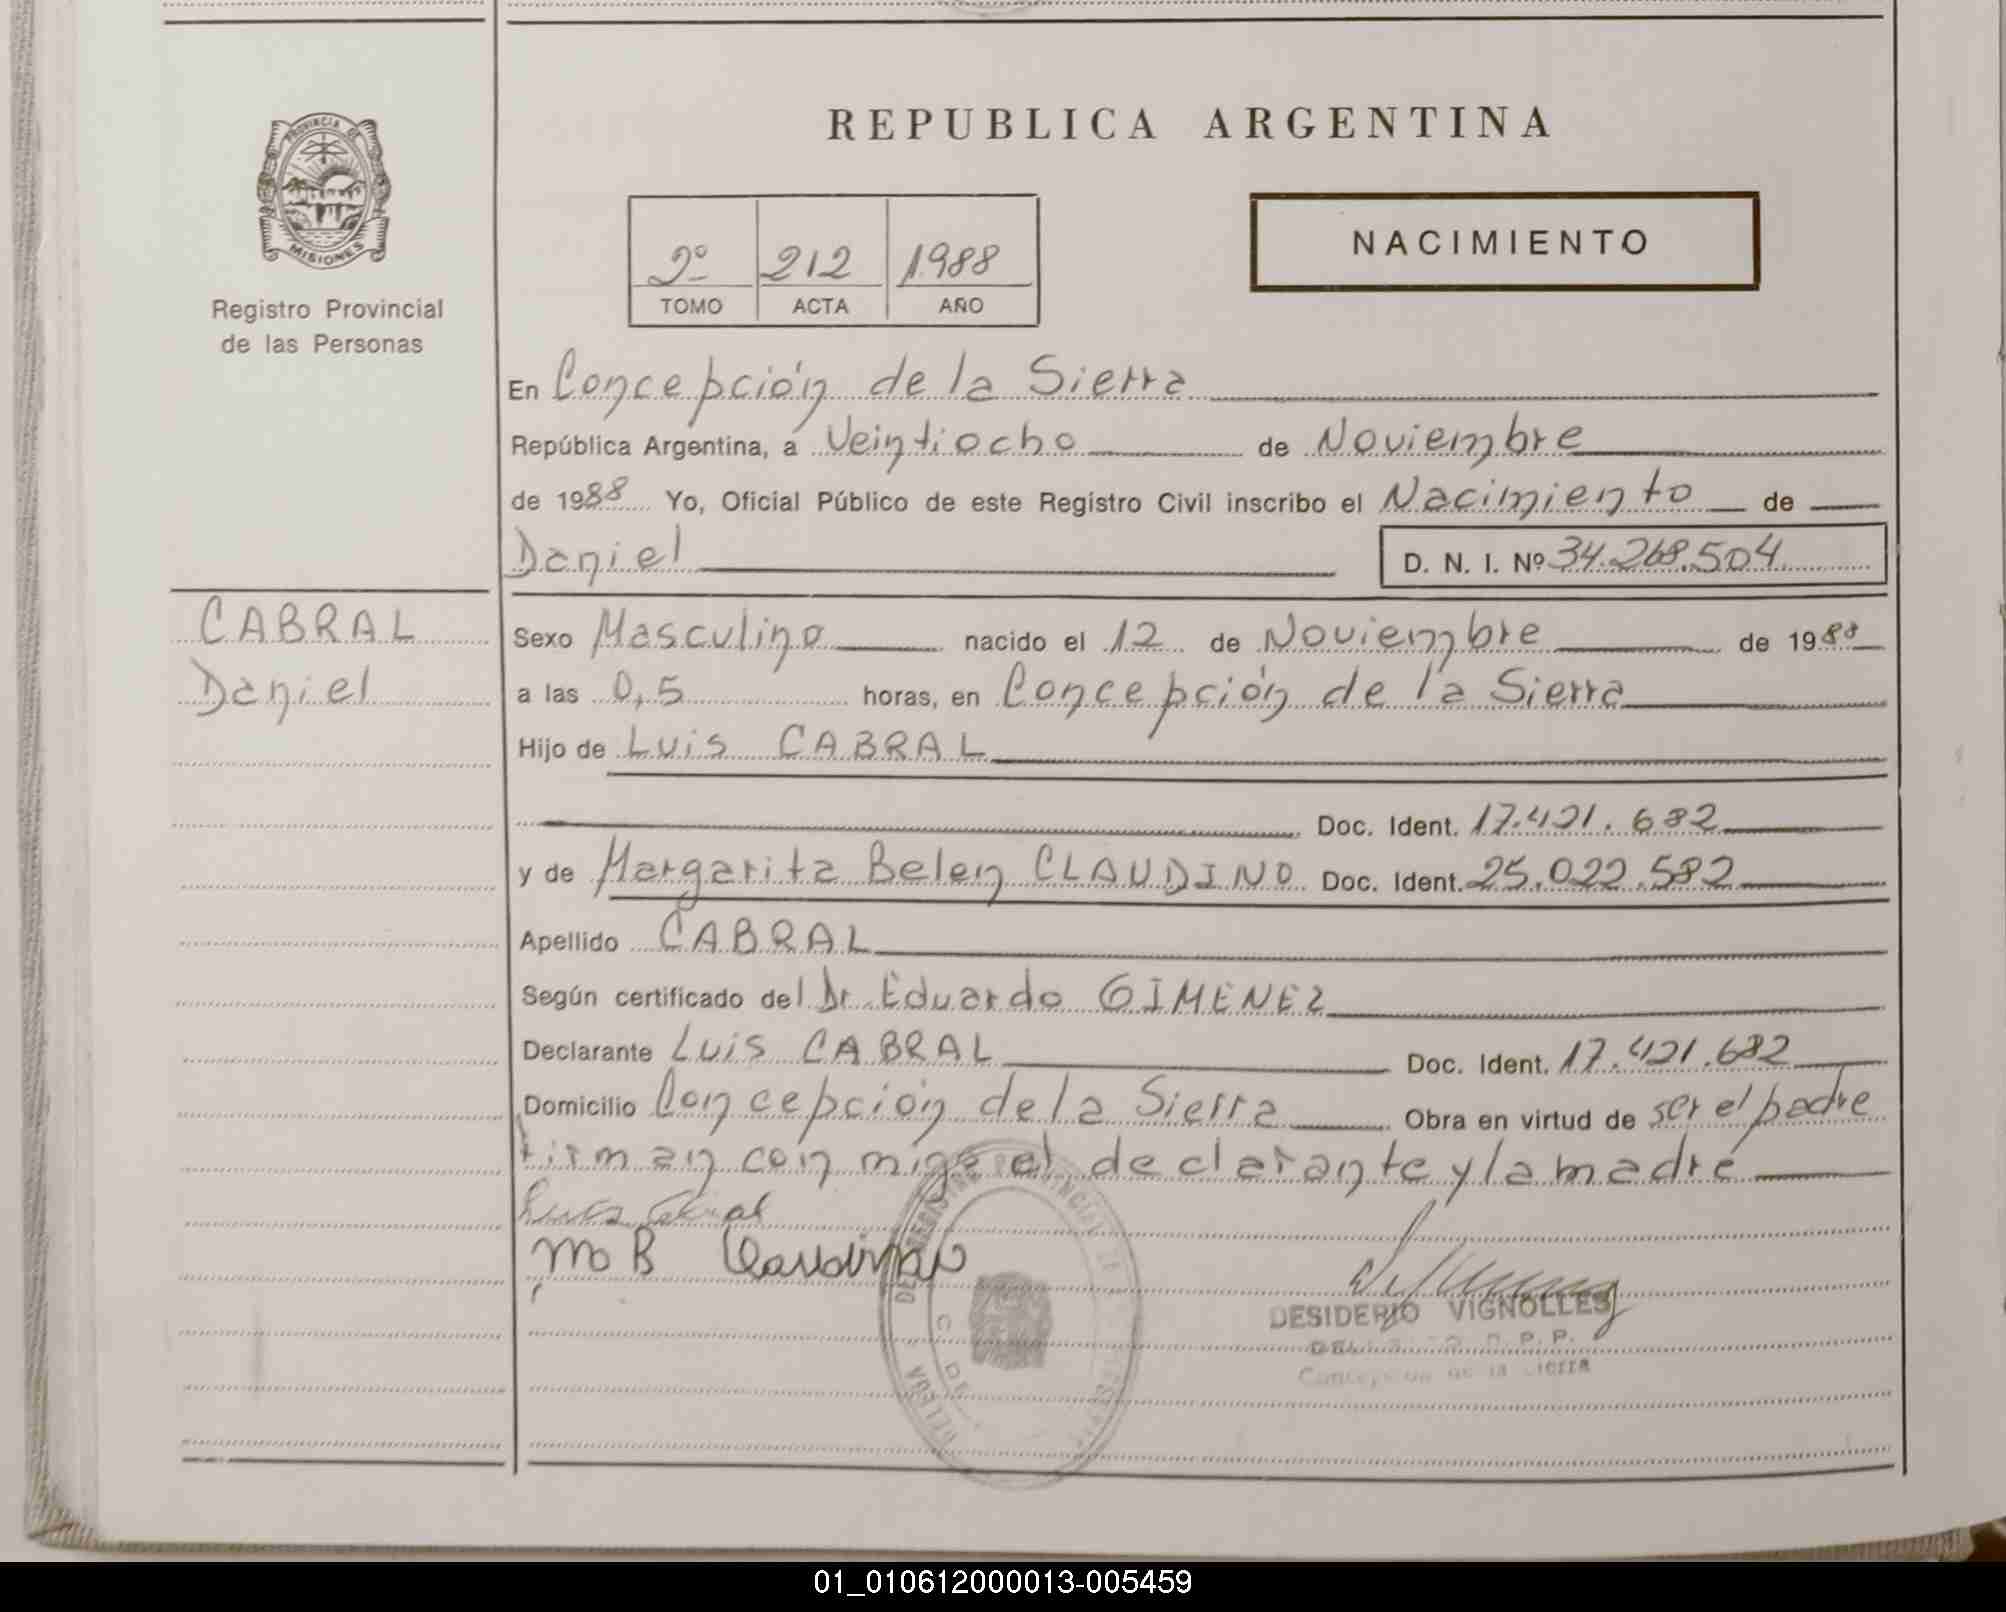 PROVINCIA DE
MISIONES
Registro Provincial
de las Personas
CABRAL
Daniel
REPUBLICA ARGENTINA
2º 212 1988
TOMO ACTA AÑO
NACIMIENTO
En Concepción de la Sierra
República Argentina, a Veintiocho de Noviembre
de 1988 Yo, Oficial Público de este Registro Civil inscribo el Nacimiento de
Daniel D. N. I. Nº 34.268.504
Sexo Masculino nacido el 12 de Noviembre de 1988
a las 0,5 horas, en Concepción de la Sierra
Hijo de Luis CABRAL
Doc. Ident. 17.421.682
y de Margarita Belen CLAUDINO Doc. Ident. 25.022.582
Apellido CABRAL
Según certificado del Dr. Eduardo GIMENEZ
Declarante Luis CABRAL Doc. Ident. 17.421.682
Domicilio Concepción de la Sierra Obra en virtud de ser el padre
firman con migo el declarante y la madre
Luis Cabral
M B Claudino
DESIDERIO VIGNOLLES
R. P. P.
Concepción de la Sierra
01_010612000013-005459